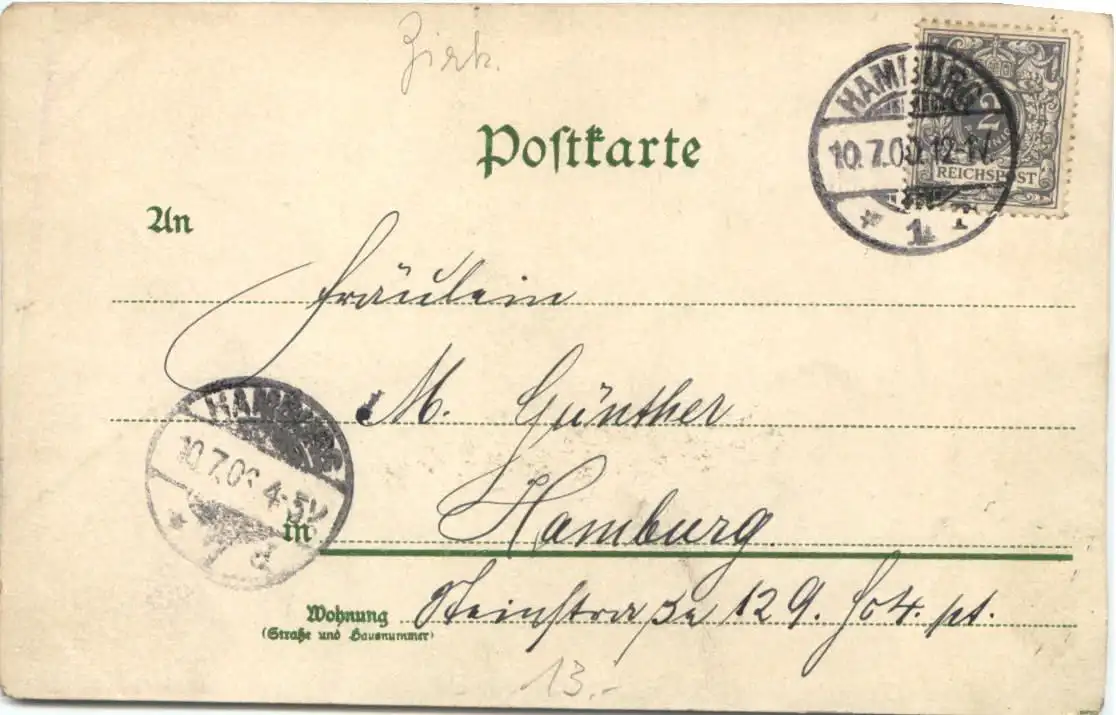 Zirk.
Postkarte
HAMBURG
10.7.00. 12-1N.
* 1. *
2
REICHSPOST
An
Fräulein
M. Günther
HAMBURG
10.7.00 4-5N
* 1 d
in Hamburg.
Wohnung Steinstraße 129. Hof 4. pt.
(Straße und Hausnummer)
13.-